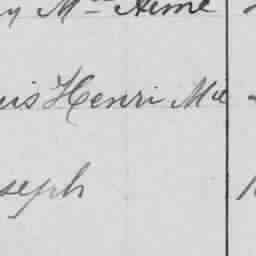 y Mᵐᵉ Aimé
uis Henri Mie
seph